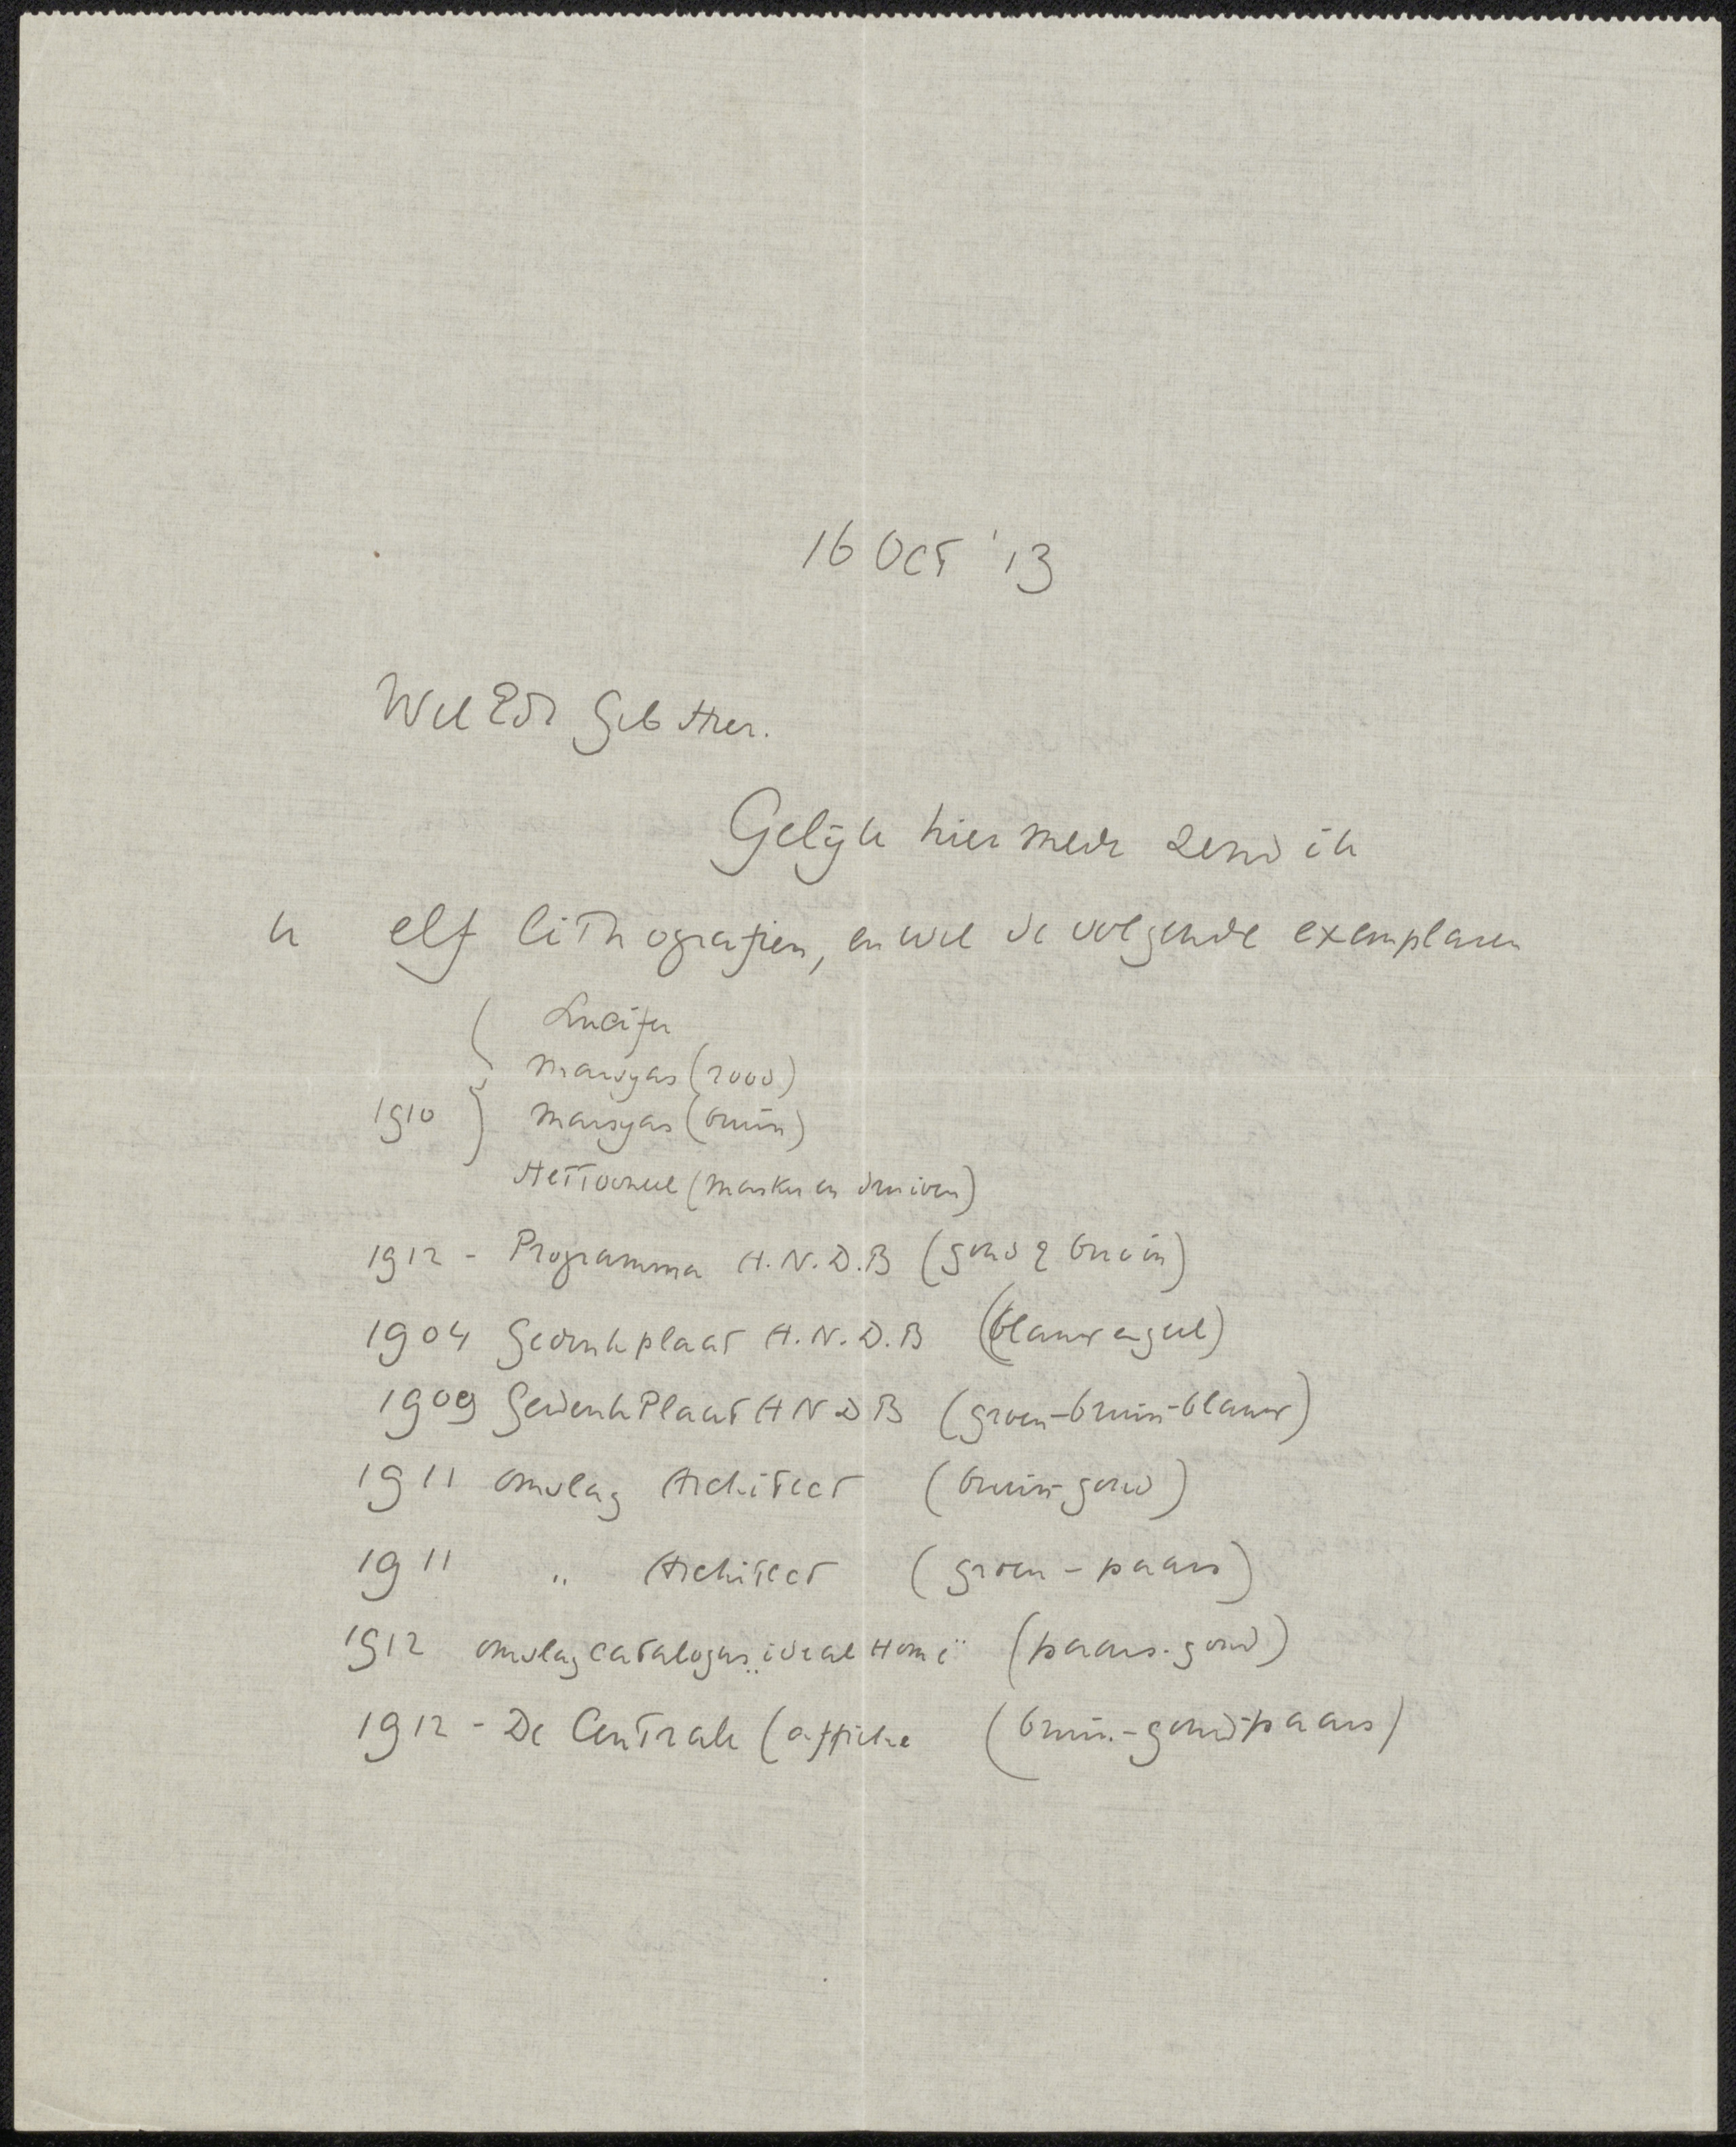 16 Oct '13
Wel Ed Geb Heer.
Gelijk hiermede zend ik
u elf lithografien, en wel de volgende exemplaren
Lucifer
Marsyas (rood)
1910 Marsyas (bruin)
Het Tooneel (masker en druiven)
1912 - Programma H.N.D.B (goud & bruin)
1904 Gedenkplaat H.N.D.B (blauw en geel)
1909 Gedenkplaat H N D B (groen-bruin-blauw)
1911 omslag Architect (bruin-goud)
1911 " Architect (groen - paars)
1912 omslag catalogus „ideal Home" (paars-goud)
1912 - De Centrale (affiche (bruin-goud-paars)